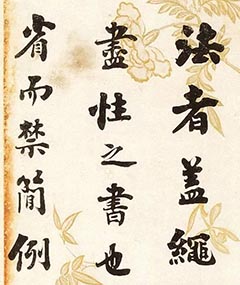 法者盖繩
盡性之書也
省而禁簡例